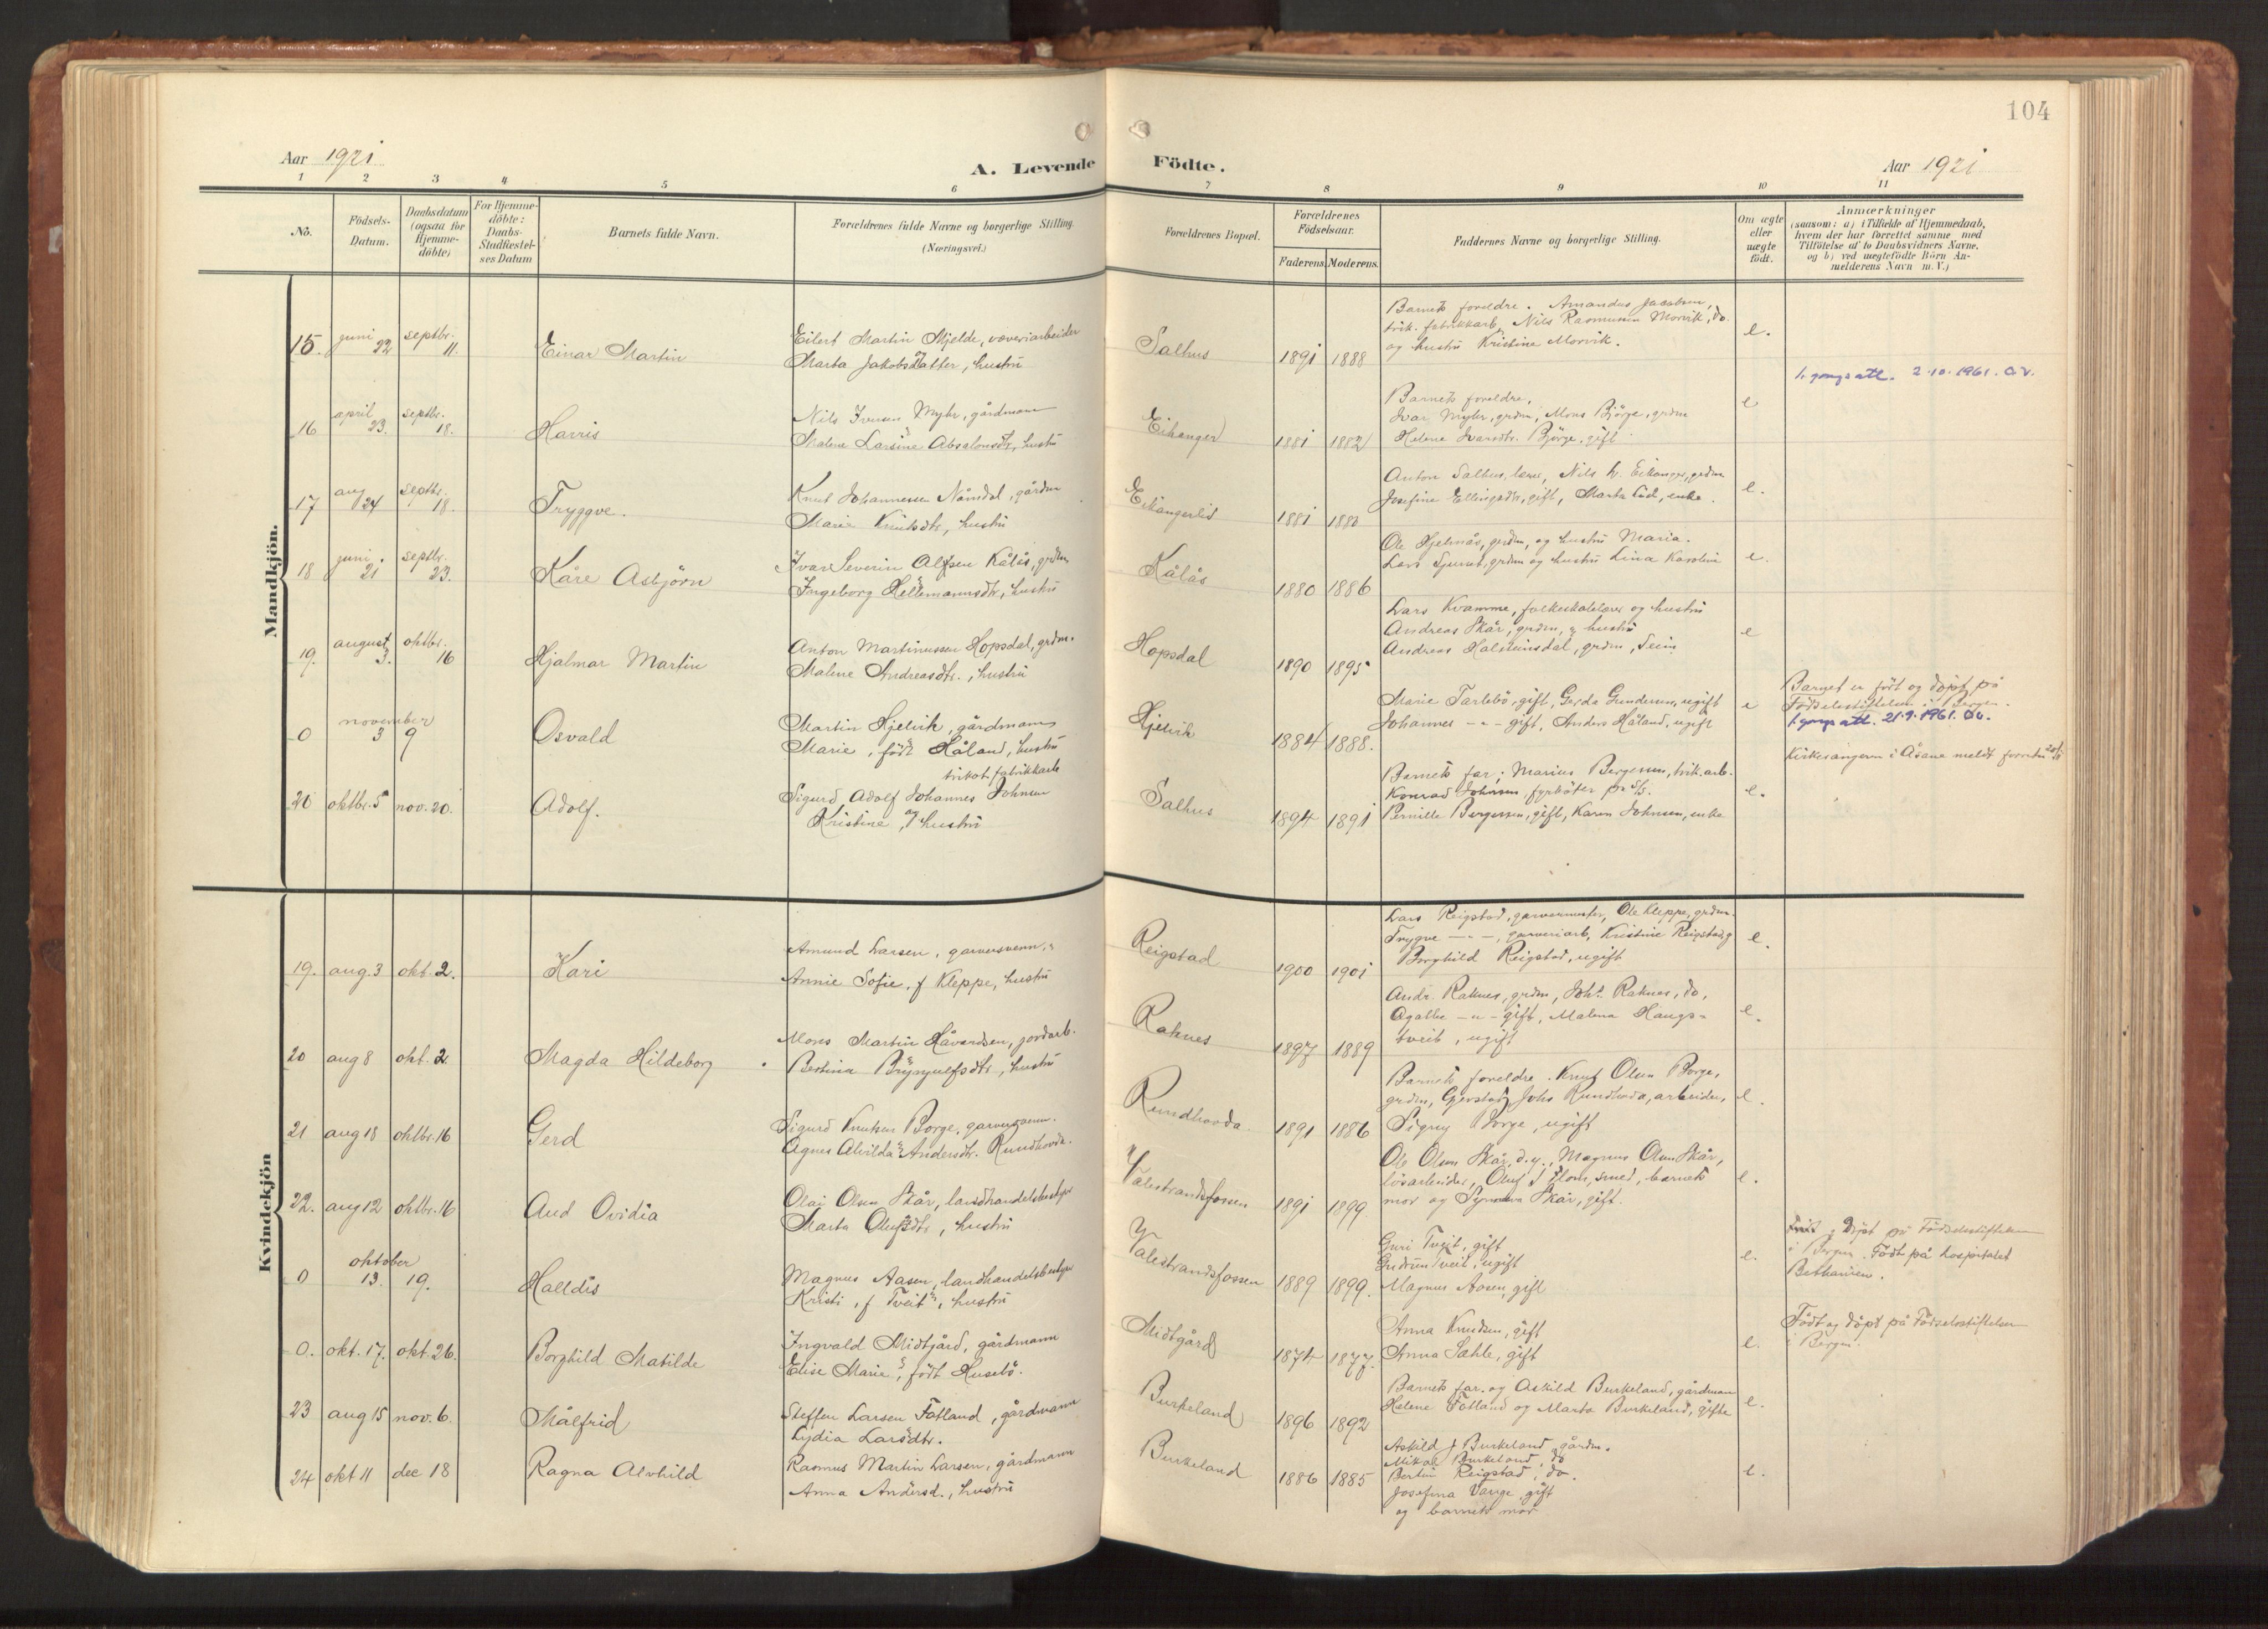 104
Aar 1921
A. Levende Födte.
Aar 1921
1 2 3 4 5 6 7 8 9 10 11
No.
Födsels-
Datum.
Daabsdatum
(ogsaa for
Hjemme-
döbte)
For Hjemme-
döbte:
Daabs-
Stadfæstel-
ses Datum
Barnets fulde Navn.
Forældrenes fulde Navne og borgerlige Stilling.
(Næringsvei.)
Forældrenes Bopæl.
Forældrenes
Födselsaar.
Faderens. Moderens.
Faddernes Navne og borgerlige Stilling.
Om ægte
eller
uægte
födt.
Anmærkninger
(saasom: a) i Tilfælde af Hjemmedaab,
hvem der har forrettet samme med
Tilföielse af to Daabsvidners Navne,
og b) ved uægtefödte Börn An-
melderens Navn m. V.)
Mandkjön.
15. juni 22 septbr. 11.
Einar Martin
Eilert Martin Mjelde, væveriarbeider
og Marta Jakobsdatter, hustru
Salhus
1891 1888
Barnets foreldre. Amandus Jacobsen,
trik. fabrikkarb, Nils Rasmussen Morvik, do.
og hustru Kristine Morvik.
e.
1. gangs att. 2.10.1961.
16 april 23. septbr. 18.
Harris
Nils Iversen Myhr, gårdmann
Malene Larsine Absalonsdtr, hustru
Eikanger
1881 1882
Barnets foreldre,
Ivar Myhr, grdm, Mons Bjørge, grdm
Helene Ivarsdtr. Bjørge, gift
e
17 aug 24 septbr. 18.
Tryggve.
Knut Johannessen Nåmdal, gårdm
Marie Knutsdtr, hustru
Eikangerlid
1881
Anton Salhus, lærer, Nils H. Eikanger, grdm
Josefine Ellingsdtr, gift, Marta Lid, enke.
e.
18 juni 21 septbr. 23.
Kåre Asbjörn
Ivar Severin Alfsen Kålås, grdm
Ingeborg Hellemannsdtr, hustru
Kålås
1880 1886
Ole Hjelmås, grdm, og hustru Maria.
Lars grdm og hustru Lina Karoline
e.
19. august 3. oktbr. 16
Hjalmar Martin
Anton Martinussen Hopsdal, grdm.
Malene Andreasdtr., hustru
Hopsdal
1890 1895
Lars Kvamme, folkeskolelærer og hustru
Andreas Skår, grdm, og hustru
Andreas Halsteinsdal, grdm, Seim
e
0 november 3 9
Osvald
Martin Hjelvik, gårdmann
Marie, født Håland, hustru
Hjelvik
1884 1888.
Marie Tarlebö, gift, Gerda Gundersen, ugift
Johannes -"- gift, Anders Håland, ugift
e
Barnet er født og döpt på
Fødselsstiftelsen i Bergen.
1. gangs att. 21.9.1961.
20 oktbr. 5 nov. 20.
Adolf.
trikot.fabrikkarb
Sigurd Adolf Johannes Johnsen
og Kristine, hustru
Salhus
1894 1891
Barnets far, Marius Bergesen, trik. arb.
Konrad Johnsen, fyrböter på S/S.
Pernille Bergesen, gift, Karen Johnsen, enke
e.
Kirkesangeren i Åsane meldt
Kvindekjön
19. aug. 3 okt. 2.
Kari
Amund Larsen, garversvenn,
Annie Sofie, f Kleppe, hustru
Reigstad
1900 1901
Lars Reigstad, garvermester, Ole Kleppe, grdm.
Trygve -"-, garveriarb, Kristine Reigstad, g
Borghild Reigstad, ugift
e.
20 aug 8 okt. 2
Magda Hildeborg
Mons Martin Håvardsen, jordarb.
Bertina Brynjulfsdtr, hustru
Raknes
1897 1889
Andr. Raknes, grdm, Joh. Raknes, do,
Agathe -"- gift, Malena Haugs-
tveit, ugift
e.
21 aug 18 oktbr. 16
Gerd
Sigurd Knutsen Borge, garversvenn.
Agnes Alvilda Andersdtr. Rundhovde.
Rundhovda
1891 1886
Barnets foreldre. Knut Olsen Borge,
grdm, Johs Rundhovda, arbeider,
Signy Borge, ugift
e.
22. aug 12 oktbr. 16
Aud Ovidia
Olai Olsen Skår, landhandelsbestyrer
Marta Olufsdtr, hustru
Valestrandsfossen
1891 1899
Ole Olsen Skår, d.y., Magnus Olsen Skår,
lösarbeider, Oluf smed, barnets
mor og Synneva Skår, gift.
e.
0 oktober 13. 19.
Halldis
Magnus Aasen, landhandelsbestyrer
Kristi, f Tveit, hustru
Valestrandsfossen
1889 1899.
Guri Tveit, gift
Gudrun Tveit, ugift
Magnus Aasen, gift
e.
döpt på Fødselsstiftelsen
i Bergen. Født på hospitalet
Bethanien.
0. okt. 17. okt. 26.
Borghild Matilde
Ingvald Midtgård, gårdmann
Elise Marie, født Husebö.
Midtgård
1874 1877.
Anna Knudsen, gift
Anna Sahle, gift
e.
Født og döpt på Fødselsstiftelsen
i Bergen.
23 aug 15 nov. 6.
Målfrid
Steffen Larsen Fotland, gårdmann
Lydia Larsdtr.
Burkeland
1896 1892
Barnets far. og Askild Burkeland, gårdmann
Helene Fotland og Marta Burkeland, gifte
e.
24 okt 11 dec 18
Ragna Alvhild
Rasmus Martin Larsen, gårdmann
Anna Andersd., hustru
Burkeland
1886 1885
Askild J Burkeland, gårdm.
Mikal Burkeland, do
Bertin Reigstad, do.
Josefina Vange, gift
og barnets mor
e.